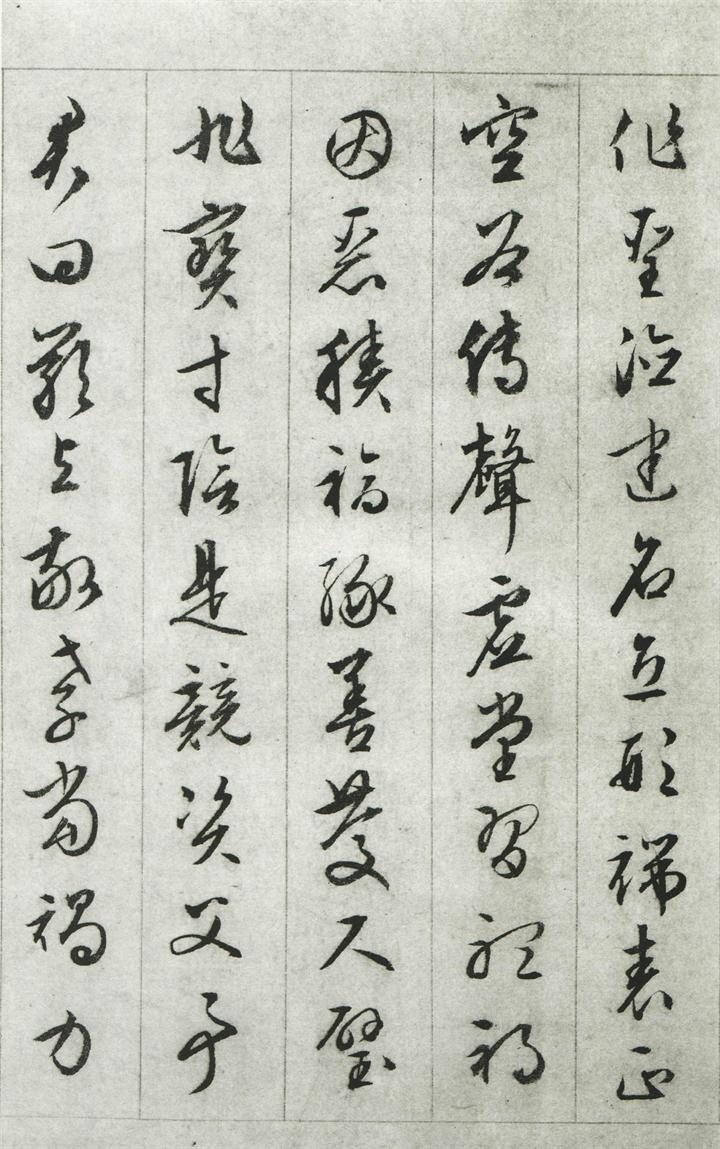 作聖德建名立形端表正
空谷傳聲虛堂習聽禍
因惡積福緣善慶尺璧
非寶寸陰是競資父事
君曰嚴与敬孝當竭力